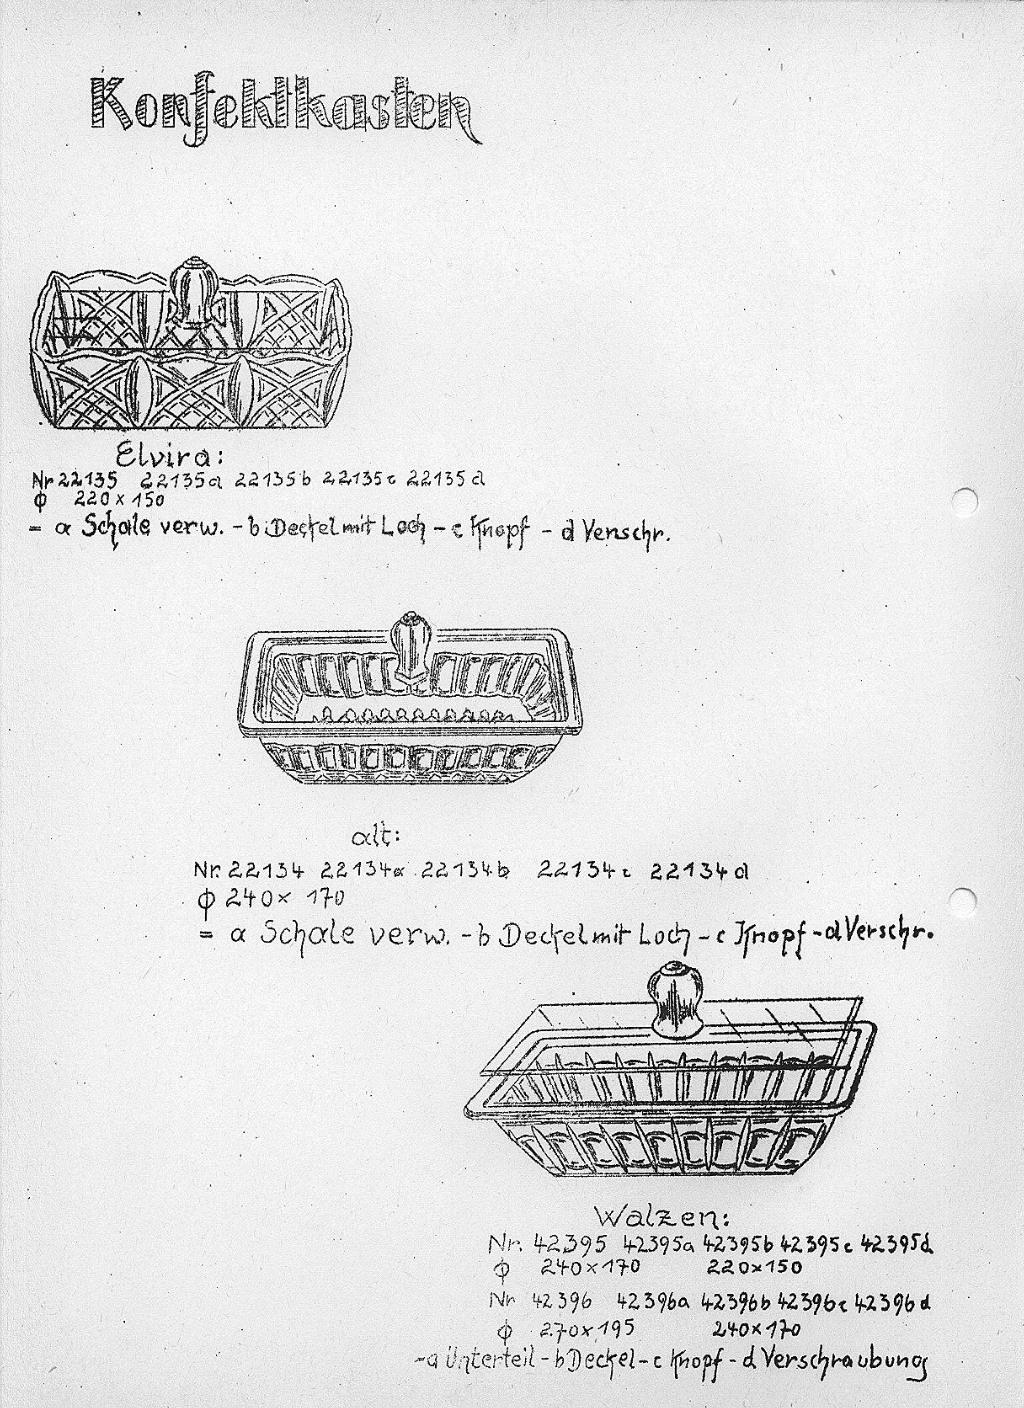 Konfektkasten
Elvira:
Nr 22135 22135a 22135b 22135c 22135d
ϕ 220 x 150
= a Schale verw. - b Deckel mit Loch - c Knopf - d Verschr.
alt:
Nr. 22134 22134a 22134b 22134c 22134d
ϕ 240 x 170
= a Schale verw. - b Deckel mit Loch - c Knopf - d Verschr.
Walzen:
Nr. 42395 42395a 42395b 42395c 42395d
ϕ 240 x 170 220 x 150
Nr 42396 42396a 42396b 42396c 42396d
ϕ 270 x 195 240 x 170
- a Unterteil - b Deckel - c Knopf - d Verschraubung